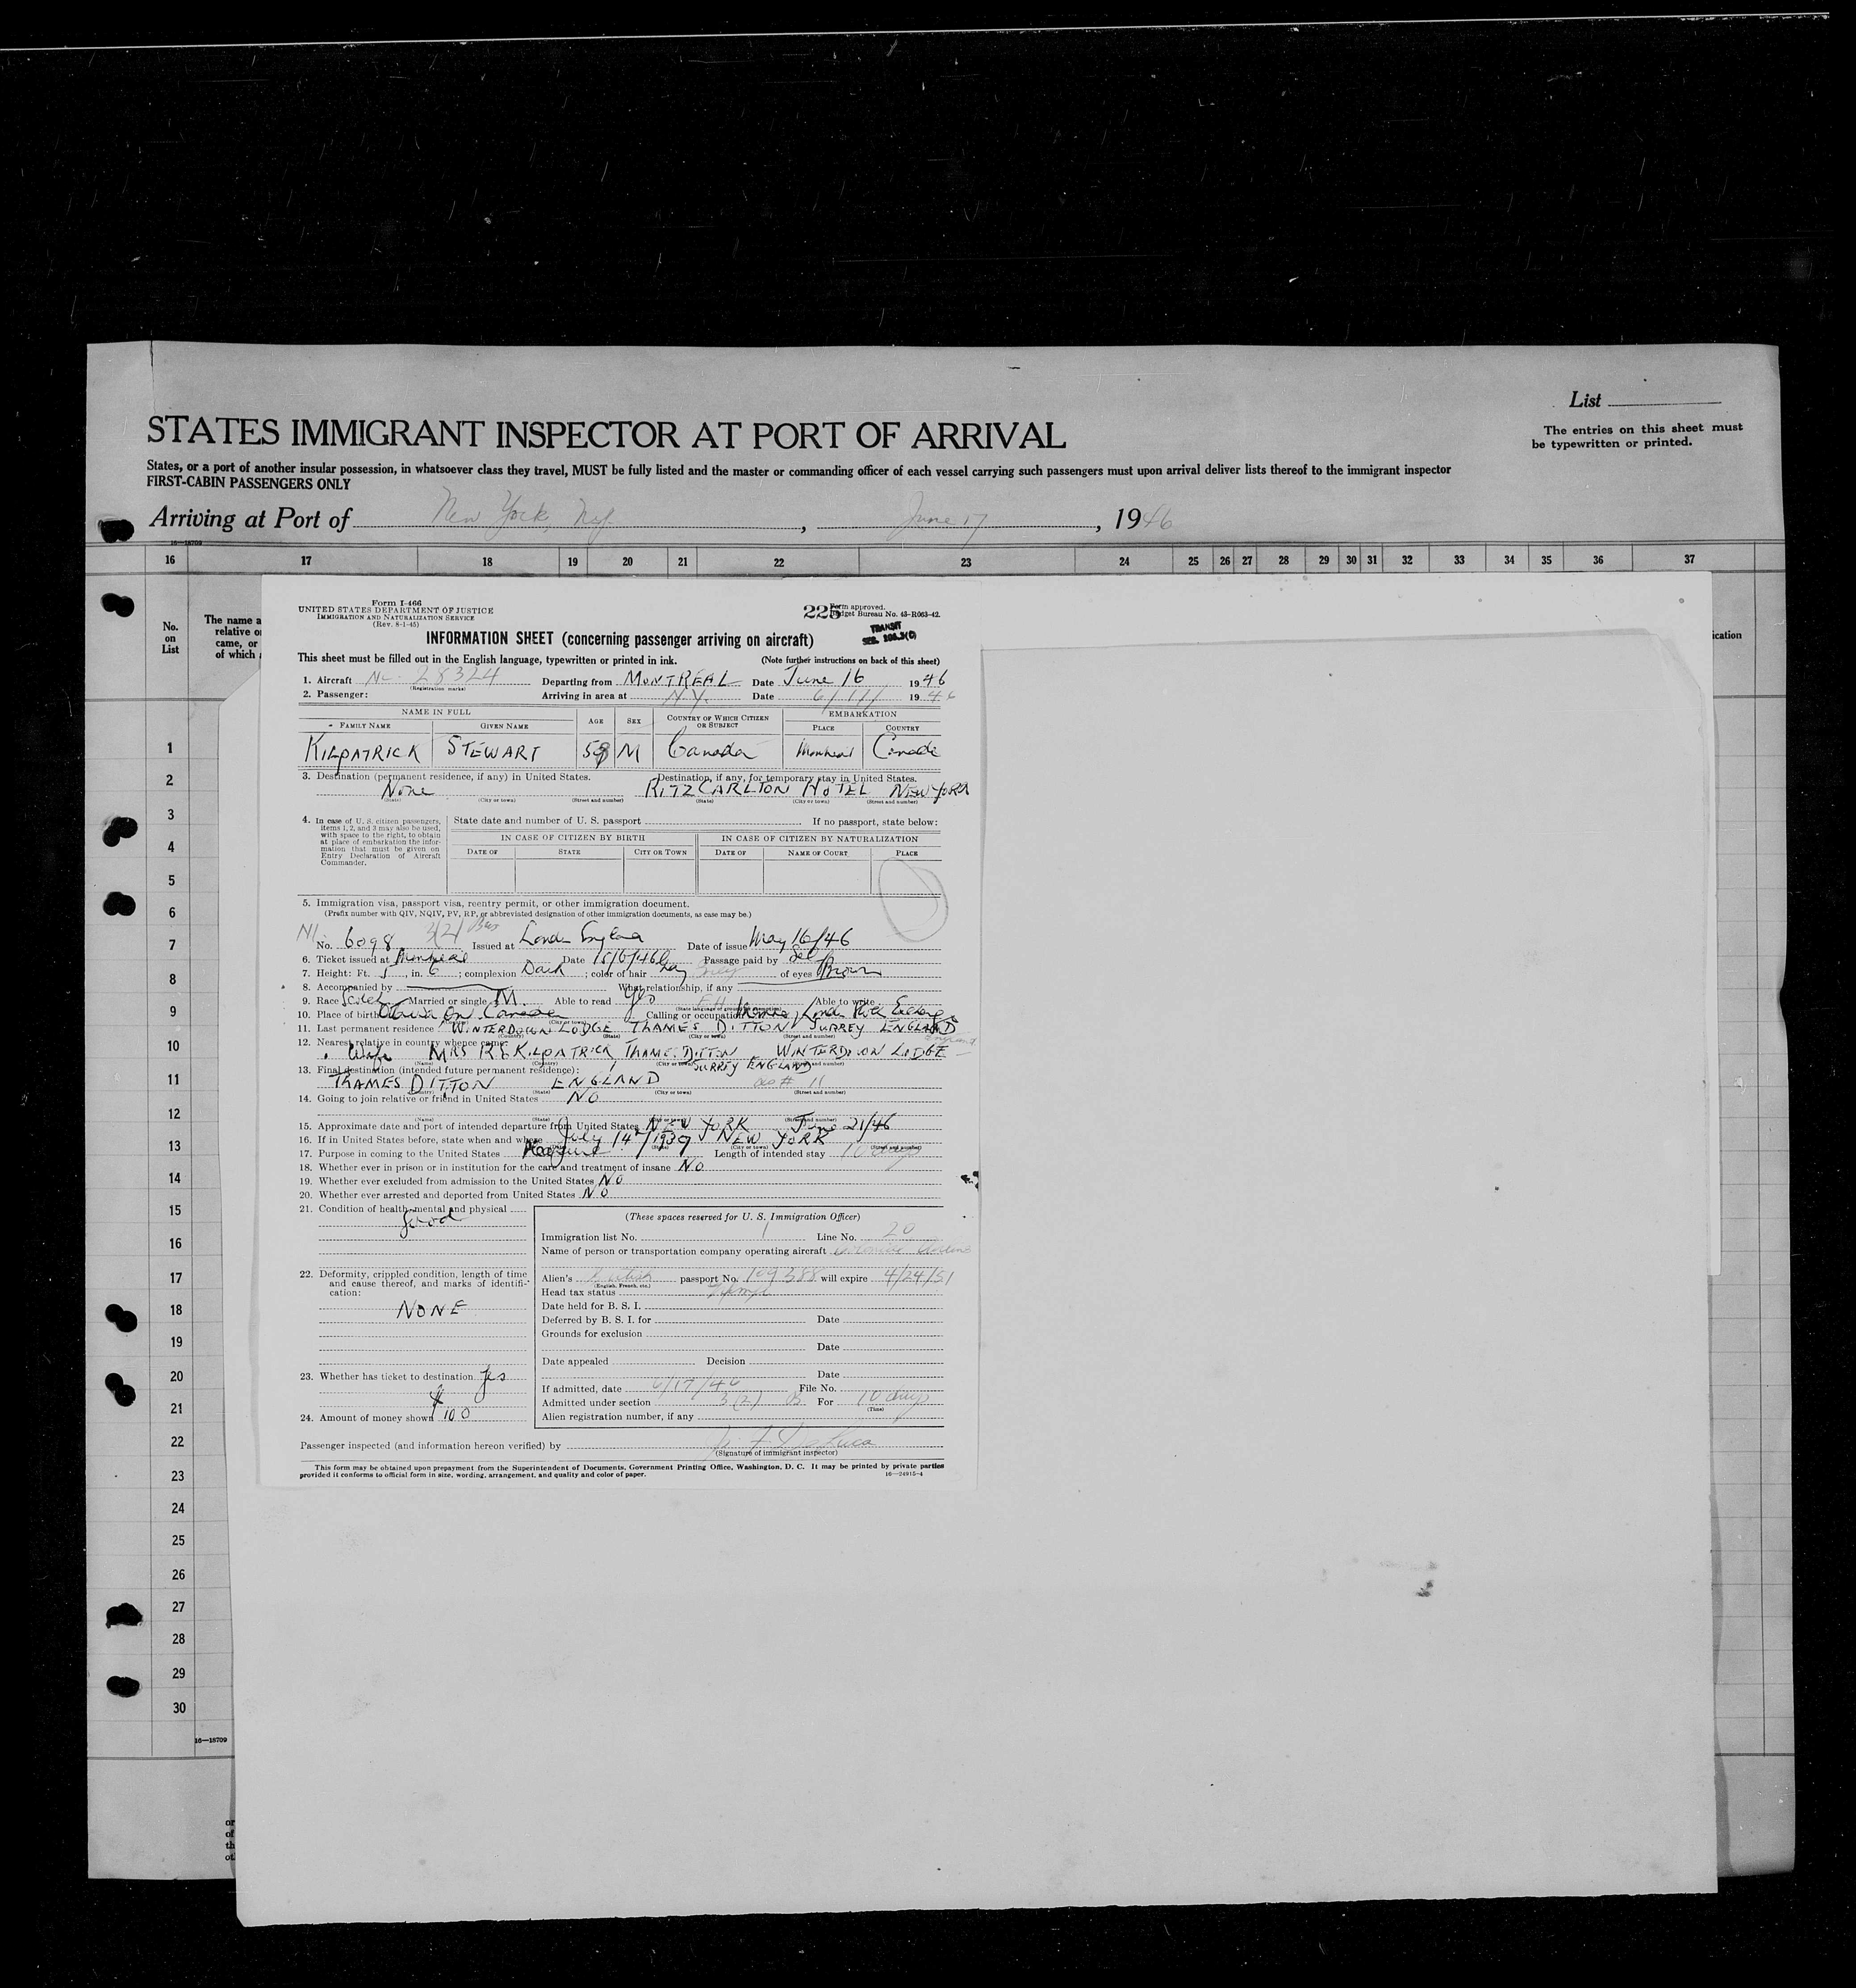 List
The entries on this sheet must
be typewritten or printed.
STATES IMMIGRANT INSPECTOR AT PORT OF ARRIVAL
States, or a port of another insular possession, in whatsoever class they travel, MUST be fully listed and the master or commanding officer of each vessel carrying such passengers must upon arrival deliver lists thereof to the immigrant inspector
FIRST-CABIN PASSENGERS ONLY
Arriving at Port of New York, N.Y. , June 17 , 1946
16—18709
16 17 18 19 20 21 22 23 24 25 26 27 28 29 30 31 32 33 34 35 36 37
No.
on
List
The name a
relative o
came, or
of which
ication
Form I-466
UNITED STATES DEPARTMENT OF JUSTICE
IMMIGRATION AND NATURALIZATION SERVICE
(Rev. 8-1-45)
225
Form approved.
Budget Bureau No. 43-R063-42.
TRANSIT
INFORMATION SHEET (concerning passenger arriving on aircraft)
This sheet must be filled out in the English language, typewritten or printed in ink. (Note further instructions on back of this sheet)
1. Aircraft NC- 28324 Departing from MONTREAL Date June 16 1946
(Registration marks)
2. Passenger: Arriving in area at N.Y. Date 1946
NAME IN FULL AGE SEX COUNTRY OF WHICH CITIZEN OR SUBJECT EMBARKATION
FAMILY NAME GIVEN NAME PLACE COUNTRY
KILPATRICK STEWART M Canada Montreal Canada
3. Destination (permanent residence, if any) in United States. Destination, if any, for temporary stay in United States.
None RITZ CARLTON HOTEL NEW YORK
(State) (City or town) (Street and number) (State) (City or town) (Street and number)
4. In case of U. S. citizen passengers,
items 1, 2, and 3 may also be used,
with space to the right, to obtain
at place of embarkation the infor-
mation that must be given on
Entry Declaration of Aircraft
Commander.
State date and number of U. S. passport If no passport, state below:
IN CASE OF CITIZEN BY BIRTH IN CASE OF CITIZEN BY NATURALIZATION
DATE OF STATE CITY OR TOWN DATE OF NAME OF COURT PLACE
5. Immigration visa, passport visa, reentry permit, or other immigration document.
(Prefix number with QIV, NQIV, PV, RP, or abbreviated designation of other immigration documents, as case may be.)
No. 6098 3(2) Bus Issued at London England Date of issue May 16/46
6. Ticket issued at Montreal Date 15/6/46 Passage paid by Self
7. Height: Ft. 5, in. 6; complexion Dark; color of hair Grey of eyes Brown
8. Accompanied by What relationship, if any
9. Race Scotch Married or single M. Able to read Yes Able to write
10. Place of birth Ottawa Ont Canada Calling or occupation London Stock Exchange
11. Last permanent residence WINTERDOWN LODGE THAMES DITTON SURREY ENGLAND
(Country) (State) (City or town) (Street and number)
12. Nearest relative in country whence came
Wife MRS R.E. KILPATRICK, THAMES DITTON WINTERDOWN LODGE
SURREY ENGLAND
13. Final destination (intended future permanent residence):
THAMES DITTON ENGLAND as # 11
(Country) (State) (City or town) (Street and number)
14. Going to join relative or friend in United States NO
(Name) (State) (City or town) (Street and number)
15. Approximate date and port of intended departure from United States NEW YORK June 21/46
16. If in United States before, state when and where July 14/1939 NEW YORK
17. Purpose in coming to the United States Length of intended stay 10 days
18. Whether ever in prison or in institution for the care and treatment of insane NO
19. Whether ever excluded from admission to the United States NO
20. Whether ever arrested and deported from United States NO
21. Condition of health, mental and physical
Good
22. Deformity, crippled condition, length of time
and cause thereof, and marks of identifi-
cation:
NONE
23. Whether has ticket to destination Yes
24. Amount of money shown $100
(These spaces reserved for U. S. Immigration Officer)
Immigration list No. 1 Line No. 20
Name of person or transportation company operating aircraft Colonial Airlines
Alien's British passport No. 109388 will expire 4/24/51
(English, French, etc.)
Head tax status Exempt
Date held for B. S. I.
Deferred by B. S. I. for Date
Grounds for exclusion
Date
Date appealed Decision
Date
If admitted, date 6/17/46 File No.
Admitted under section 3(2) B For 10 days
(Time)
Alien registration number, if any
Passenger inspected (and information hereon verified) by De Luca
(Signature of immigrant inspector)
This form may be obtained upon prepayment from the Superintendent of Documents, Government Printing Office, Washington, D. C. It may be printed by private parties
provided it conforms to official form in size, wording, arrangement, and quality and color of paper.
16—24915-4
1
2
3
4
5
6
7
8
9
10
11
12
13
14
15
16
17
18
19
20
21
22
23
24
25
26
27
28
29
30
16—18709
or
of
th
ot